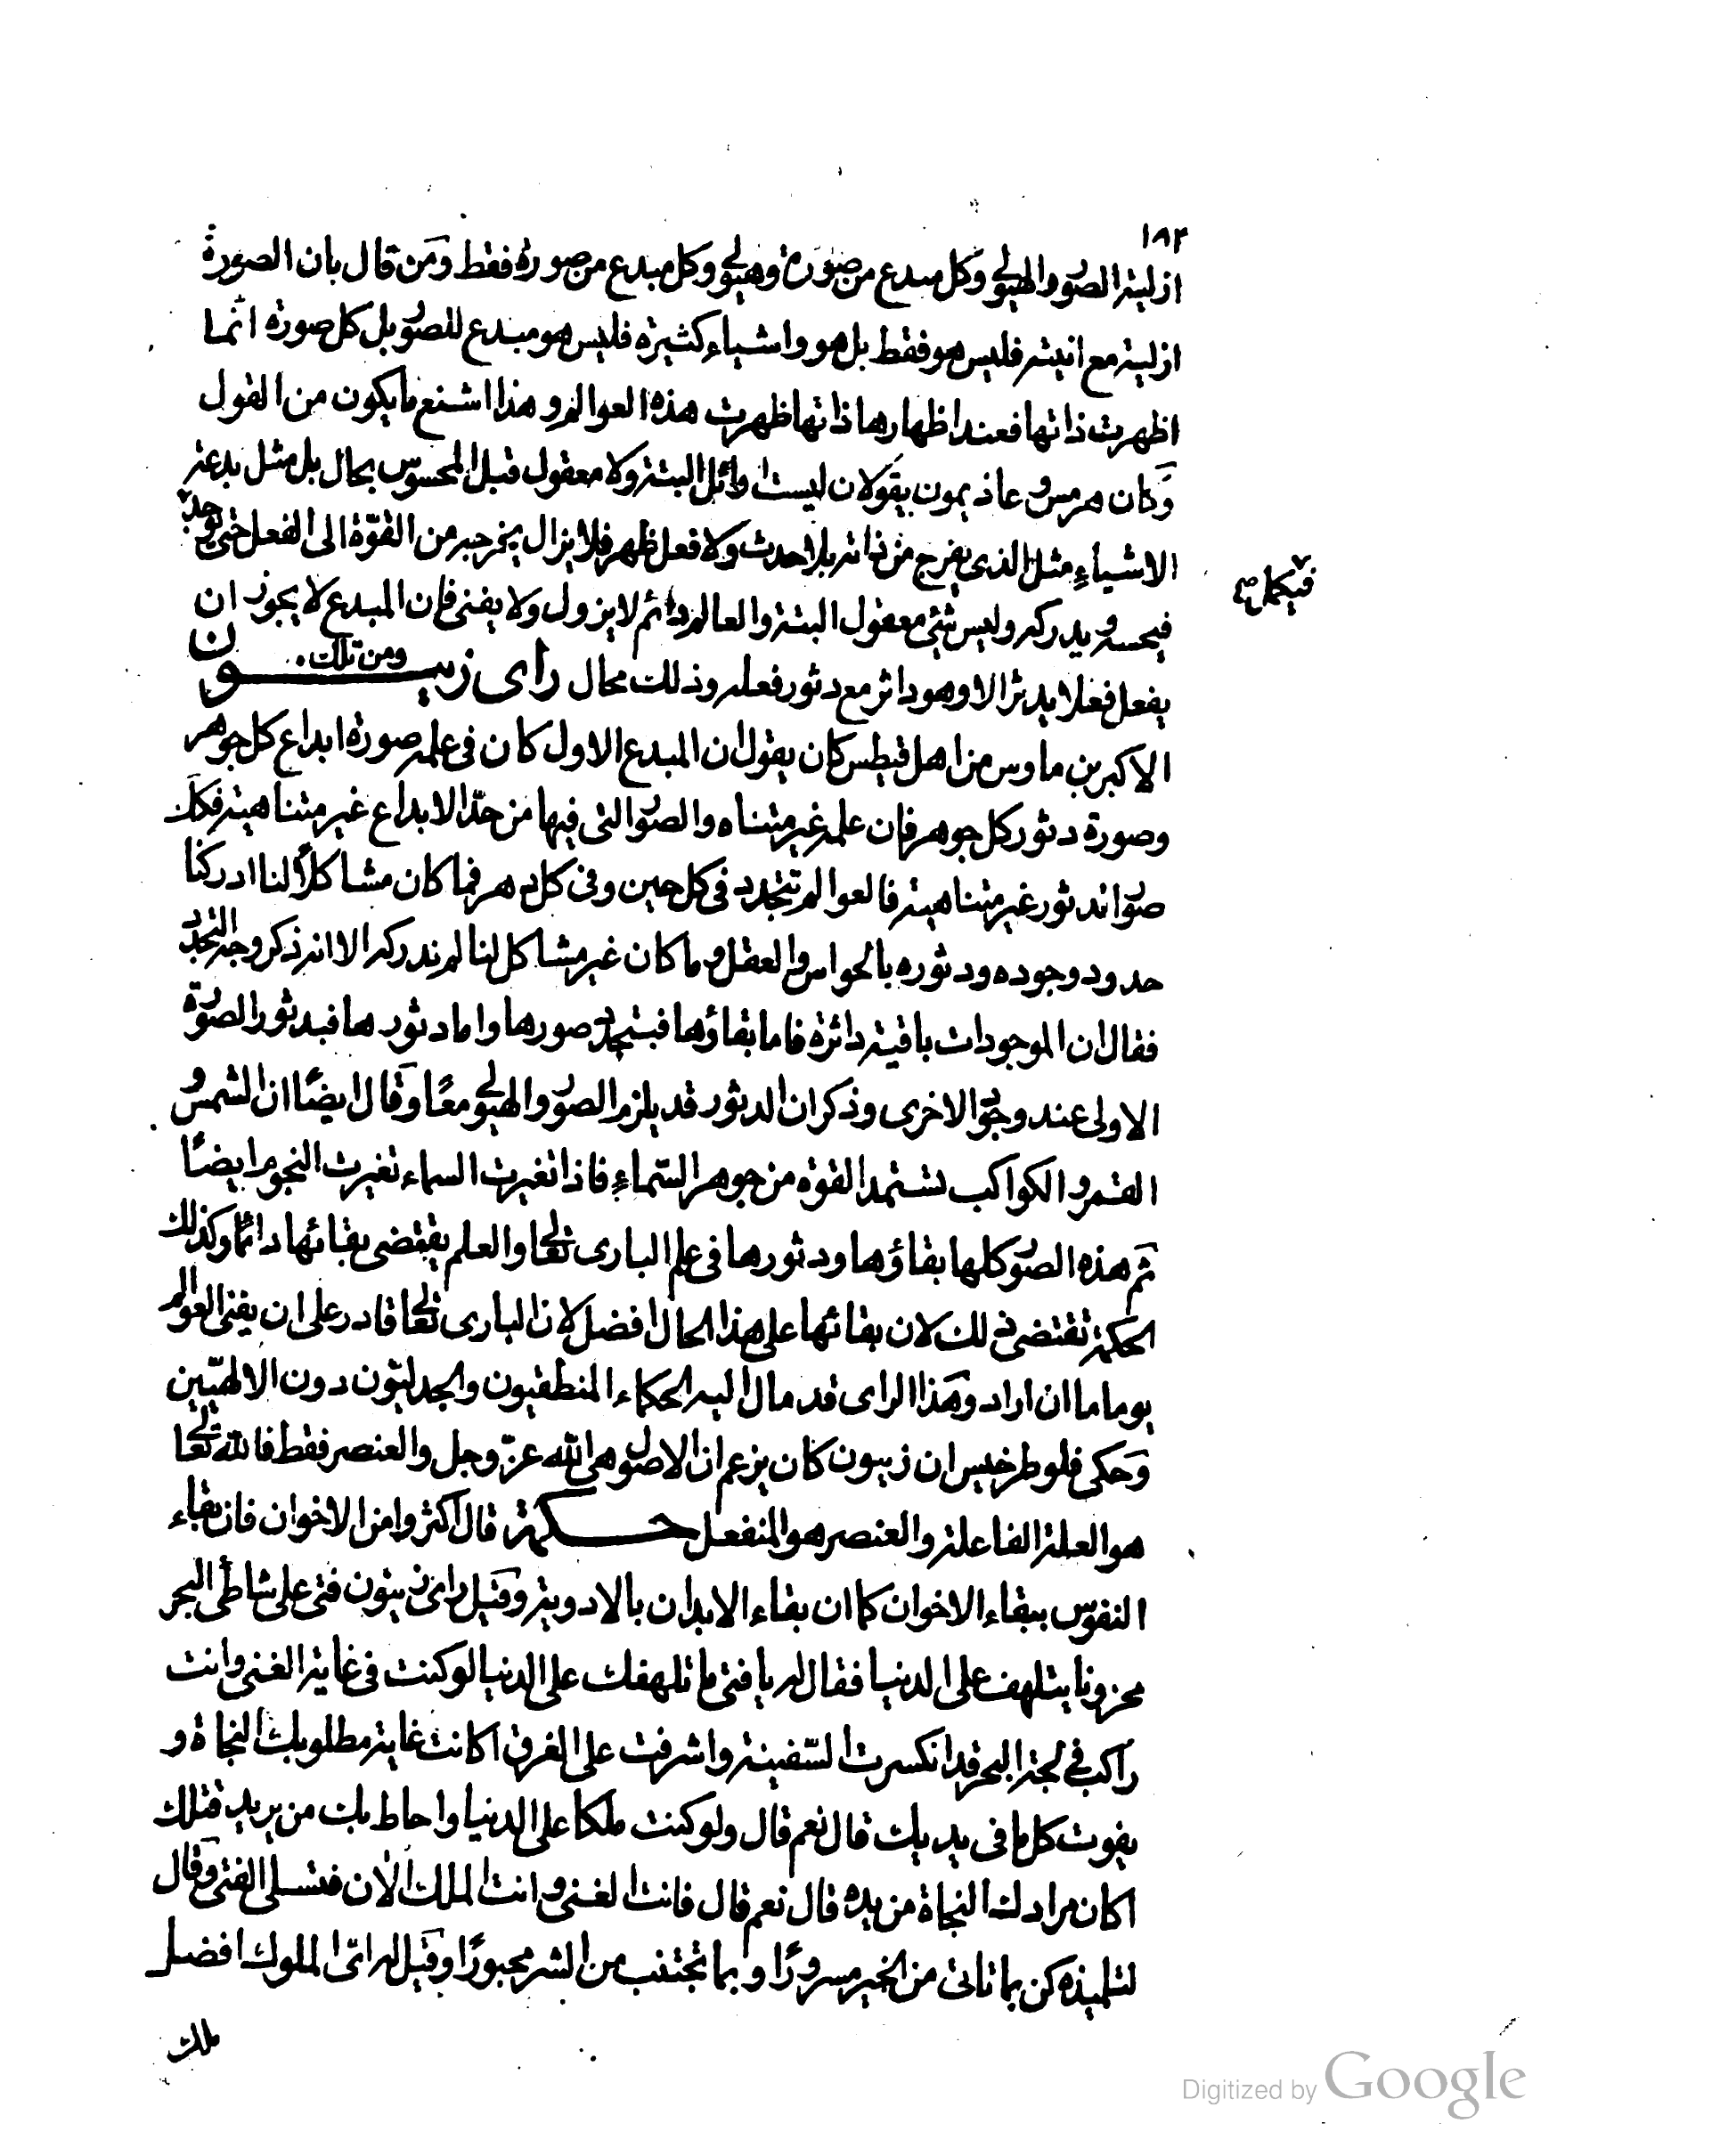 ١٨٢
ازلية الصور والهيولى وكل مبدع من صورة وهيولى وكل مبدع من صورة فقط ومن قال بان الصورة
ازلية مع انيته فليس هو فقط بل هو واشياء كثيرة فليس هو مبدع للصور بل كل صورة انما
اظهرت ذاتها فعند اظهارها ذاتها ظهرت هذه العوالم وهذا اشنع ما يكون من القول
وكان هرمس وعاذيمون يقولان ليست اوائل البتة ولا معقول قبل المحسوس بحال بل مثل بدعة
الاشياء مثل الذى يفرج من ذاته بلا حدث ولا فعل ظهر فلا يزال يخرجه من القوة الى الفعل حتى يوجد
فيكمل
فيحسه ويدركه وليس شئ معقول البتة والعالم دائم لا يزول ولا يفنى فان المبدع لا يجوز ان
يفعل فعلا يدثر الا وهو داثر مع دثور فعله وذلك محال راى زيـنـون ومن تلك
الاكبر بن ماوس من اهل قيطس كان يقول ان المبدع الاول كان فى علمه صورة ابداع كل جوهر
وصورة دثور كل جوهر فان علمه غير متناه والصور التى فيها من حد الابداع غير متناهية فكك
صور اندثور غير متناهية فالعوالم تتجدد فى كل حين وفى كل دهر فما كان مشاكلا لنا ادركنا
حدود وجوده ودثوره بالحواس والعقل وما كان غير مشاكل لنا لم ندركه الا انه ذكر وجه التجدد
فقال ان الموجودات باقية داثرة فاما بقاؤها فبتجدد صورها واما دثورها فبدثور الصورة
الاولى عند وجود الاخرى وذكر ان الدثور قد يلزم الصور والهيولى معا وقال ايضا ان الشمس و
القمر والكواكب تستمد القوة من جوهر السماء فاذا تغيرت السماء تغيرت النجوم ايضا
ثم هذه الصور كلها بقاؤها ودثورها فى علم البارى تعالى والعلم يقتضى بقائها دائما وكذلك
الحكمة تقتضى ذلك لان بقائها على هذا الحال افضل لان البارى تعالى قادر على ان يفنى العوالم
يوما ما ان اراد وهذا الراى قد مال اليه الحكماء المنطقيون والجدليون دون الالهيين
وحكى فلوطرخيس ان زينون كان يزعم ان الاصول هى الله عز وجل والعنصر فقط فالله تعالى
هو العلة الفاعلة والعنصر هو المنفعل حـكمة قال اكثروا من الاخوان فان بقاء
النفوس ببقاء الاخوان كما ان بقاء الابدان بالادوية وقيل راى زينون فتى على شاطئ البحر
محزونا يتلهف على الدنيا فقال له يا فتى ما تلهفك على الدنيا لو كنت فى غاية الغنى وانت
راكب فى لجة البحر قد انكسرت السفينة واشرفت على الغرق اكانت غاية مطلوبك النجاة و
يفوت كل ما فى يديك قال نعم قال ولو كنت ملكا على الدنيا واحاط بك من يريد قتلك
اكان مرادك النجاة من يده قال نعم قال فانت الغنى وانت الملك الان فتسلى الفتى وقال
لتلميذه كن بما تاتى من الخير مسرورا وبما تجتنب من الشر محبورا وقيل له اى الملوك افضل
ملك
Digitized by Google